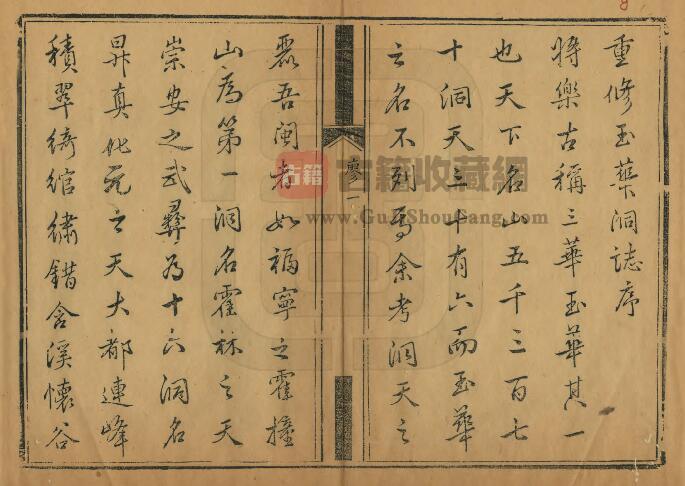 重修玉華洞誌序
將樂古稱三華玉華其一
也天下名山五千三百七
十洞天三十有六而玉華
之名不列焉余考洞天之
廖一
麗吾閩者如福寧之霍撞
山為第一洞名霍林之天
崇安之武彞為十六洞名
昇真化玄之天大都連峰
積翠綺綰繡錯含溪懷谷
古籍 古籍收藏網
www.GuJiShouCang.com